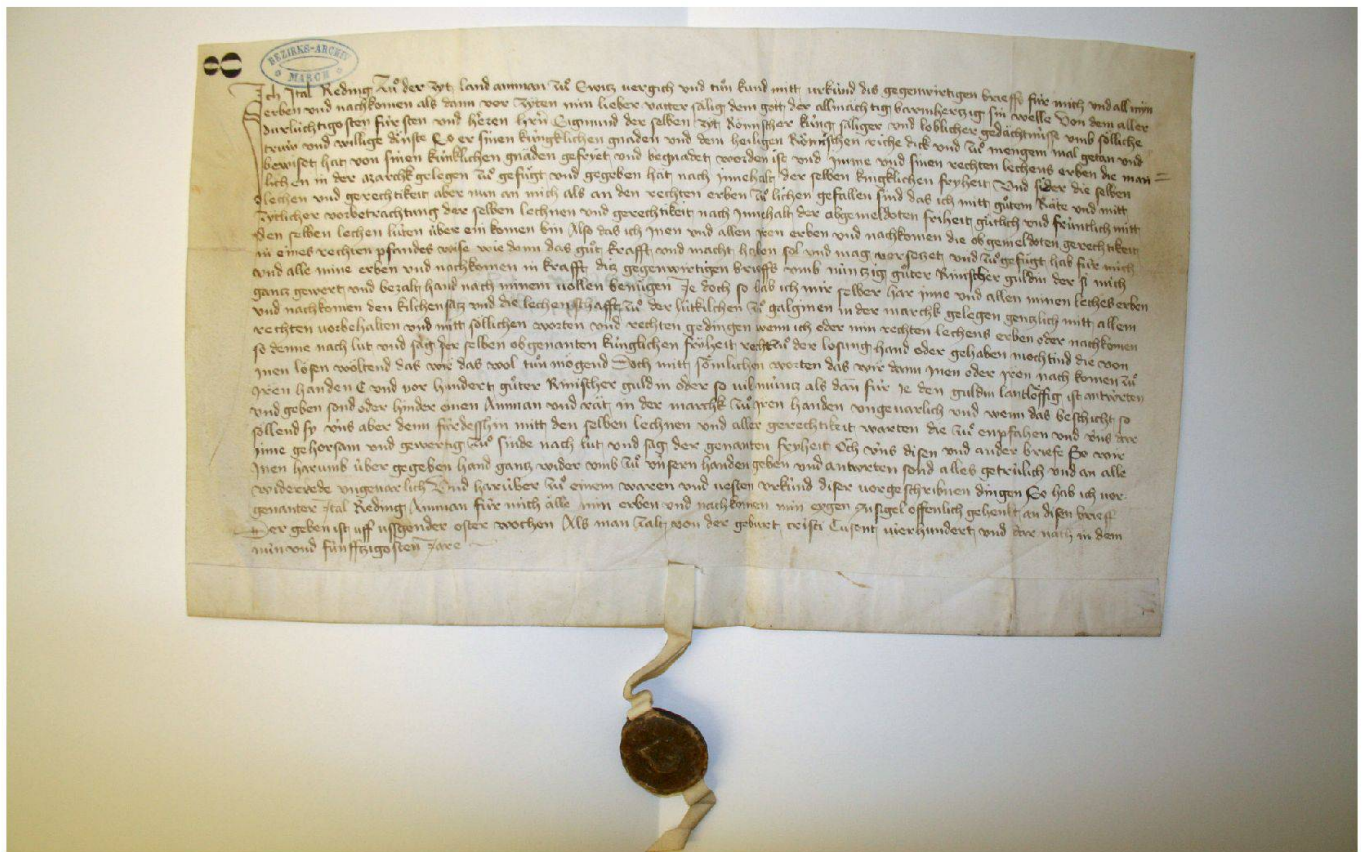 8
BEZIRKS-ARCHIV
MARCH
Ich Ital Reding zů der zyt land amman zů Switz vergich und tůn kund mitt urkund dis gegenwirtigen brieffs für mich und all min
erben und nachkomen als dann vor zyten min lieber vatter sälig dem gott der allmächtig barmherzig sin welle von dem aller
durlüchtigosten fürsten und herren hern Sigmund der selben zyt Römischer küng säliger und loblicher gedächtnisse umb sölliche
trüw und willige dienste So er sinen küngklichen gnaden und dem heiligen Römischen riche dick und zů mengem mal getan und
bewiset hat von sinen künklichen gnäden gefriet und begnadet worden ist und imme und sinen rechten lechens erben die man=
lechen in der March gelegen zů gefügt und gegeben hat nach innehalt der selben küngklichen fryheit Und sider die selben
lechen und gerechtikeit aber nun an mich als an den rechten erben zů lichen gefallen sind das ich mitt gůtem Räte und mitt
zytlicher vorbetrachtung der selben lechnen und gerechtikeit nach innhalt der obgemeldoten friheit gütlich und früntlich mitt
den selben lechen lüten über ein komen bin Also das ich inen und allen iren erben und nachkomen die obgemeldoten gerechtikeit
in eines rechten pfandes wise wie denn das gůt krafft und macht haben sol und mag versetzet und zů gefügt hab für mich
und alle mine erben und nachkomen in krafft diz gegenwirtigen brieffs umb nünzig gůter Rinischer guldin der si mich
ganz gewert und bezalt hand nach minem vollen benügen Je doch so hab ich mir selber har inne und allen minen lechens erben
und nachkomen den kilchensatz und die lechenschafft zů der lütkilchen zů galginen in der marchk gelegen genzlich mitt allem
rechten vorbehalten und mitt söllichen worten und rechten gedingen wenn ich oder min rechten lechens erben oder nachkomen
so denne nach lut und sag der selben obgenanten künglichen fryheit recht zů der losung hand oder gehaben möchtind die von
inen lösen wöltend das wir das wol tůn mögend Doch mitt sömlichen worten das wir dann inen oder iren nach komen zů
iren handen E und vor hundert gůter Rinischer guldin oder so vil müntz als dan für je den guldin lantlöffig ist antwirten
und geben sond oder hinder einen Amman und rät in der marchk zů iren handen ungevarlich und wenn das beschicht so
söllend sy uns aber denn fürdeshin mitt den selben lechnen und aller gerechtikeit warten die zů enpfahen und uns dar
inne gehorsam und gewertig zů sinde nach lut und sag der genanten fryheit Och uns disen und ander briefe So wir
inen harumb über gegeben hand ganz wider umb zů unsern handen geben und antwirten sond alles getrülich und an alle
widerrede ungevarlich Und harüber zů einem waren und vesten urkünd diser vorgeschribnen dingen So hab ich vor-
genanter Ital Reding Amman für mich alle min erben und nachkomen min eygen Insigel offenlich gehenkt an disen brieff
Der geben ist uff ussgender oster wochen Als man zalt von der geburt cristi Tusent vierhundert und dar nach in dem
nün und fünffzigosten Jare